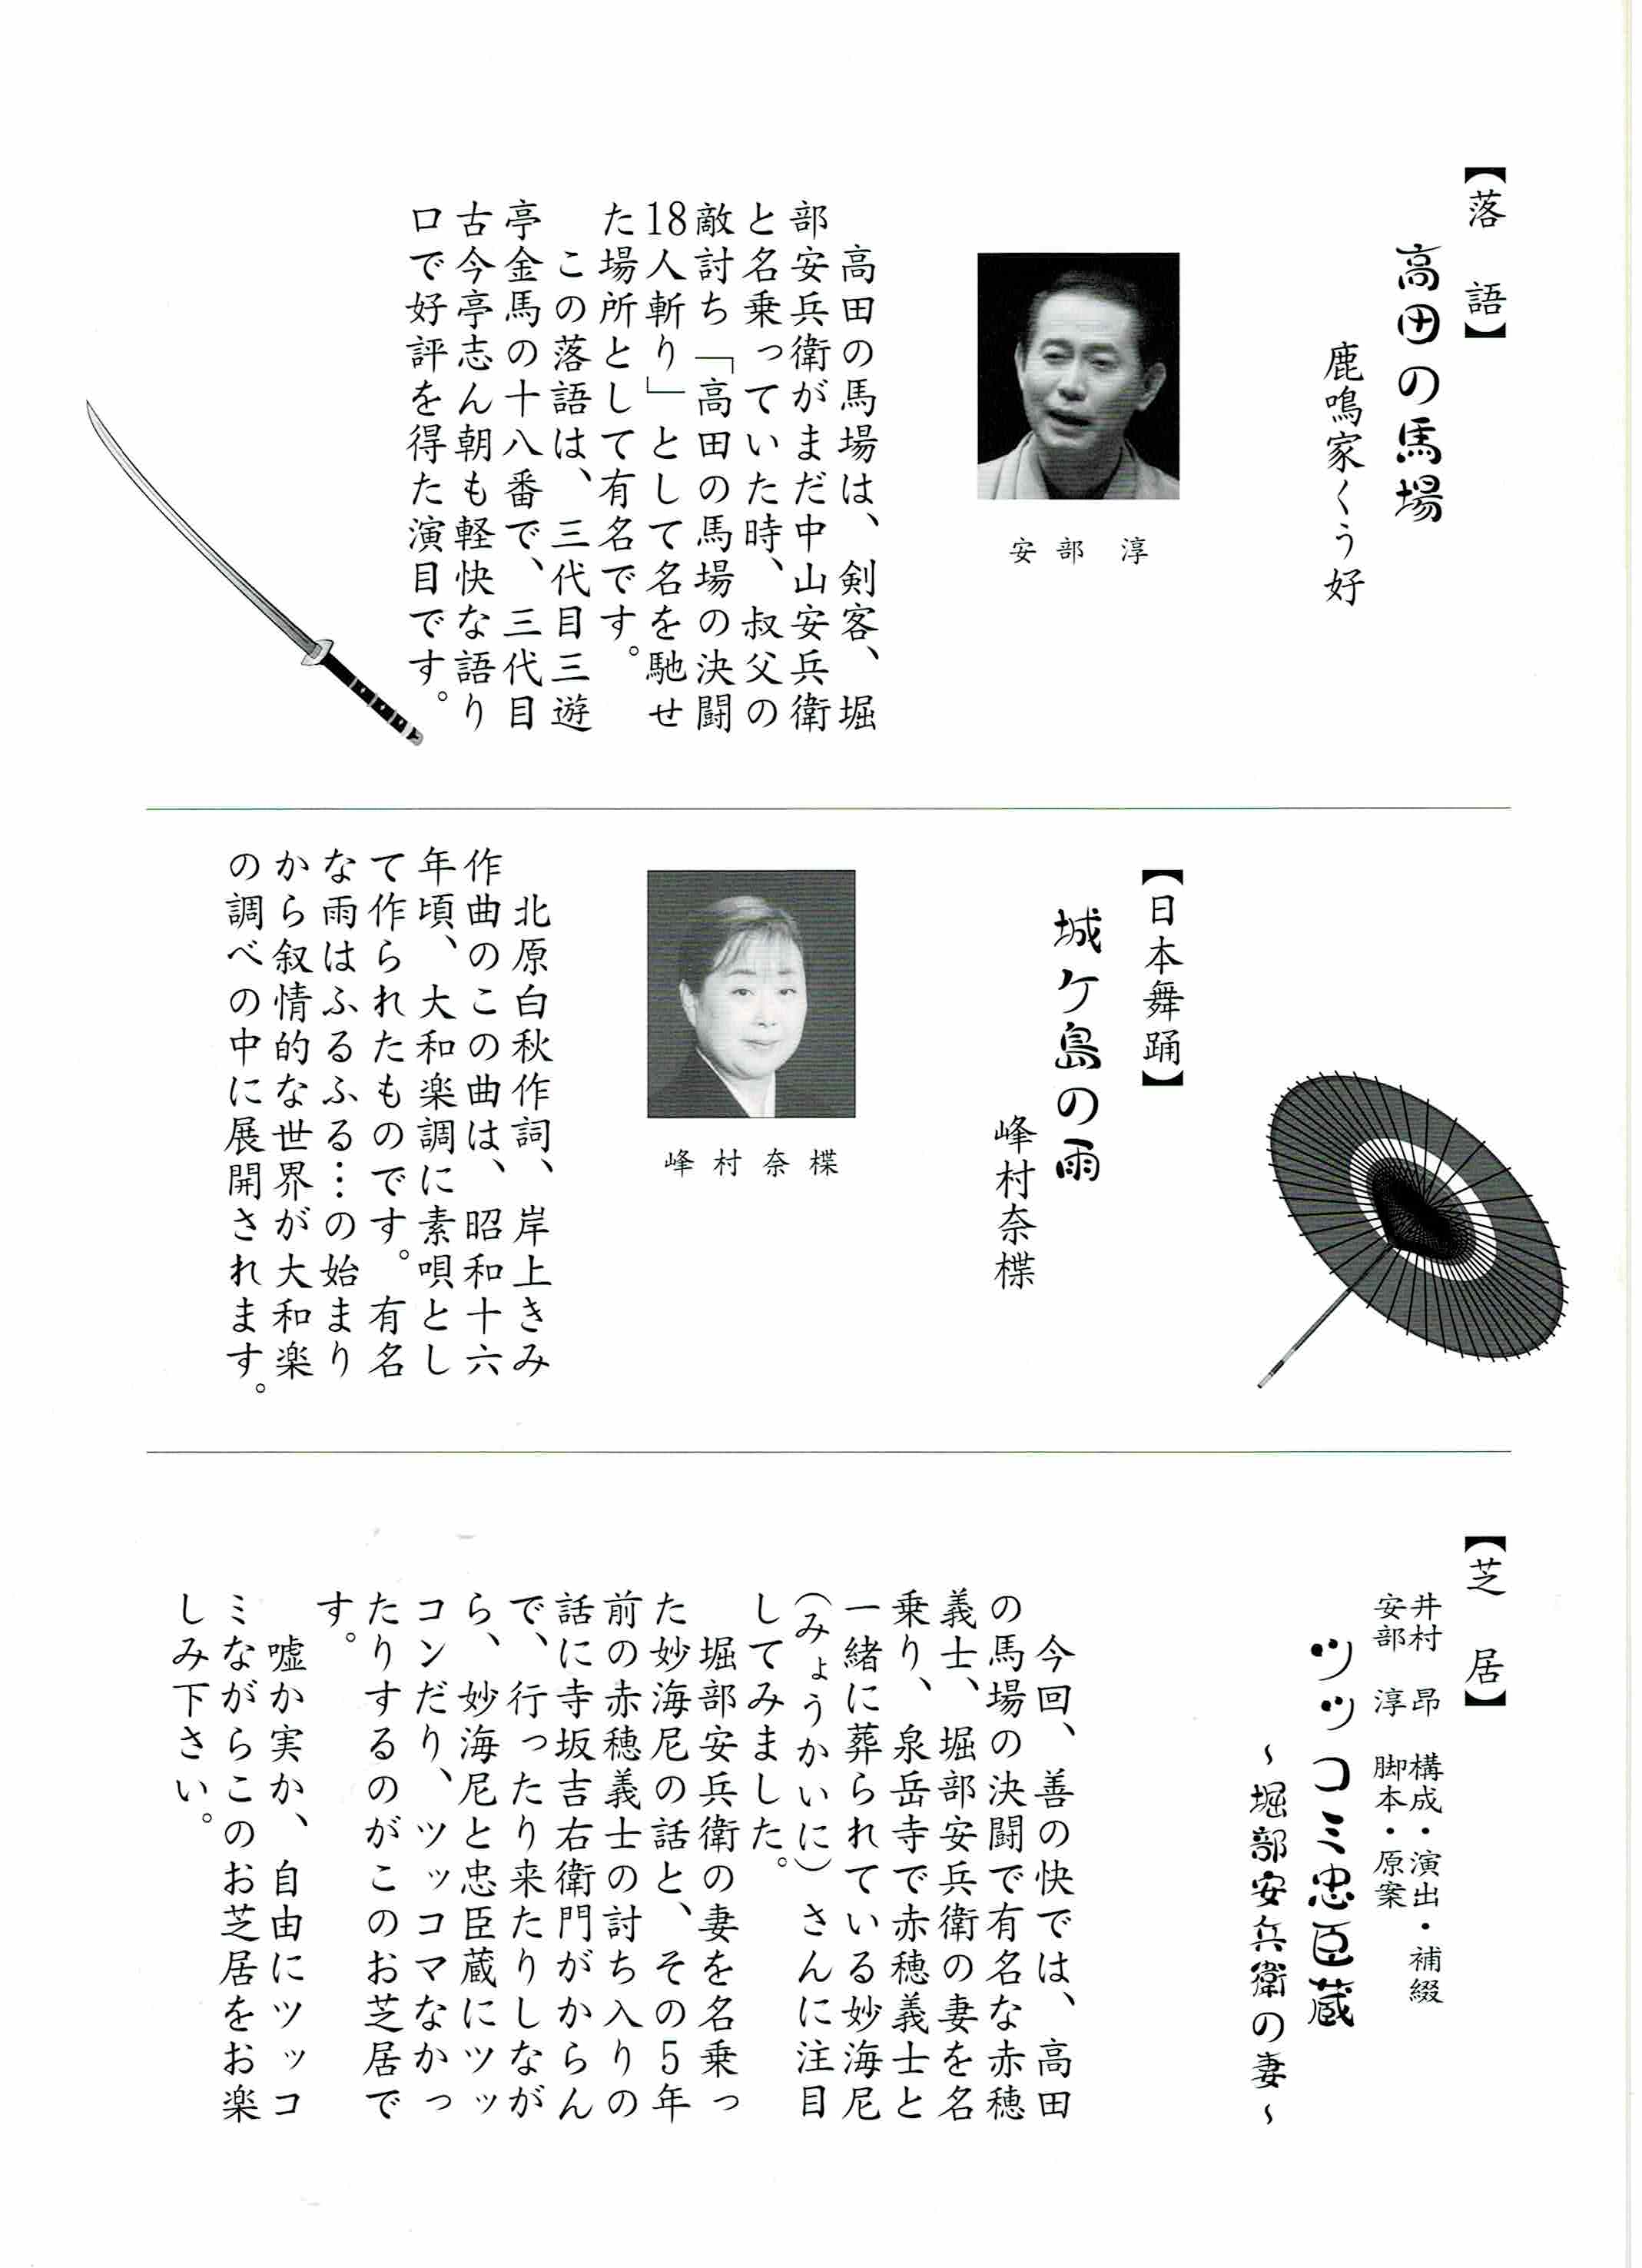 【落 語】
高田の馬場
鹿鳴家くう好
安部 淳
高田の馬場は、剣客、堀
部安兵衛がまだ中山安兵衛
と名乗っていた時、叔父の
敵討ち「高田の馬場の決闘
18人斬り」として名を馳せ
た場所として有名です。
この落語は、三代目三遊
亭金馬の十八番で、三代目
古今亭志ん朝も軽快な語り
口で好評を得た演目です。
【日本舞踊】
城ケ島の雨
峰村奈楪
峰村奈楪
北原白秋作詞、岸上きみ
作曲のこの曲は、昭和十六
年頃、大和楽調に素唄とし
て作られたものです。有名
な雨はふるふる…の始まり
から叙情的な世界が大和楽
の調べの中に展開されます。
【芝 居】
井村 昂 構成・演出・補綴
安部 淳 脚本・原案
ツッコミ忠臣蔵
~堀部安兵衛の妻~
今回、善の快では、高田
の馬場の決闘で有名な赤穂
義士、堀部安兵衛の妻を名
乗り、泉岳寺で赤穂義士と
一緒に葬られている妙海尼
(みょうかいに)さんに注目
してみました。
堀部安兵衛の妻を名乗っ
た妙海尼の話と、その5年
前の赤穂義士の討ち入りの
話に寺坂吉右衛門がからん
で、行ったり来たりしなが
ら、妙海尼と忠臣蔵にツッ
コンだり、ツッコマなかっ
たりするのがこのお芝居で
す。
嘘か実か、自由にツッコ
ミながらこのお芝居をお楽
しみ下さい。